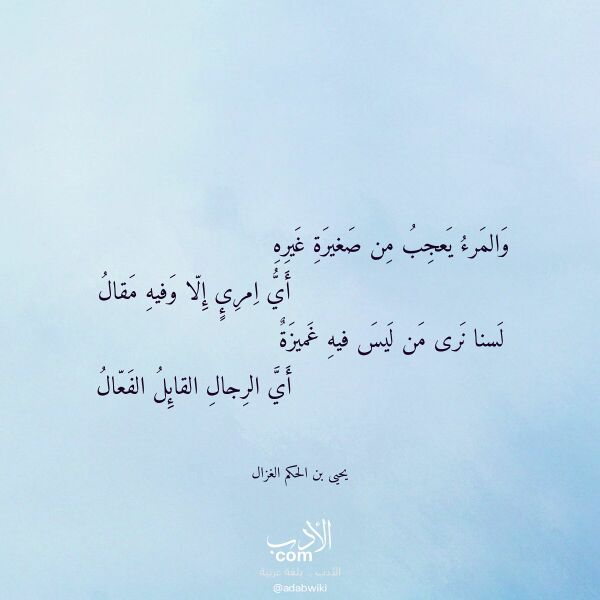 وَالمَرءُ يَعجِبُ مِن صَغيرَةِ غَيرِهِ
أَيُّ اِمرِئٍ إِلّا وَفيهِ مَقالُ
لَسنا نَرى مَن لَيسَ فيهِ غَميزَةٌ
أَيَّ الرِجالِ القائِلُ الفَعّالُ
يحيى بن الحكم الغزال
الأدب
com
الأدب .. بلغة عربية
@adabwiki